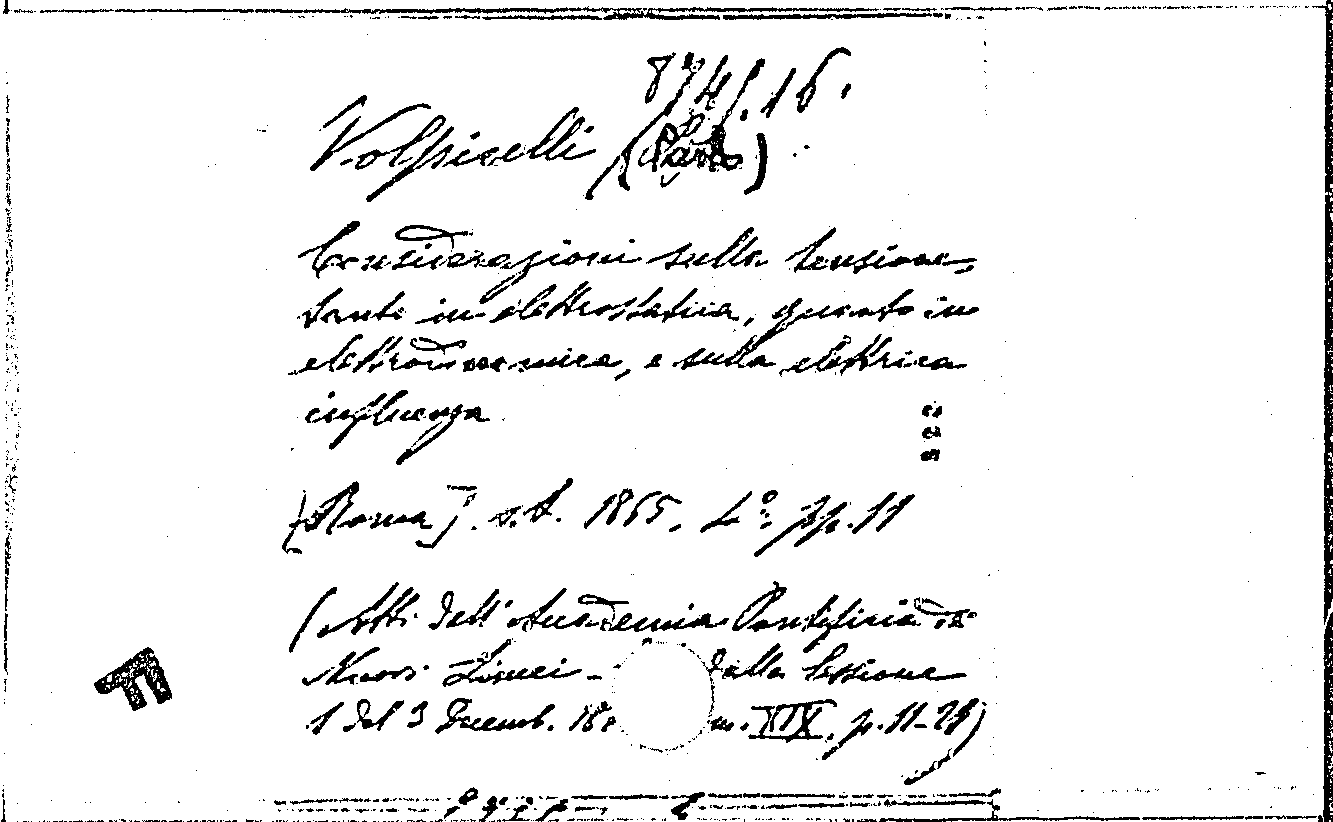 8741.16.
Volpicelli (Paolo)
Considerazioni sulla tensione,
tanto in elettrostatica, quanto in
elettrodinamica, e sulla elettrica
influenza
[Roma]. s.t. 1865. 4º. pp. 11
(Atti dell' Accademia Pontificia di
Nuovi Lincei - dalla Sessione
1 del 3 Decemb. 18 m. XIX, p. 11-21)
F